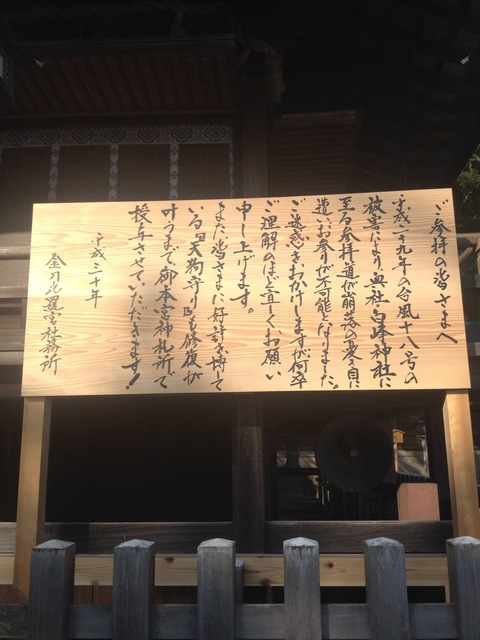 ご参拝の皆さまへ
平成二十九年の台風十八号の
被害により、奥社白峰神社に
至る参拝道が崩落の憂き目に
遭い、お参りが不可能となりました。
ご迷惑をおかけしますが何卒
ご理解のほど宜しくお願い
申し上げます。
また、皆さまに好評を博して
いる『天狗守り』も修復が
叶うまで、御本宮神札所で
授与させていただきます!
平成三十年
金刀比羅宮社務所